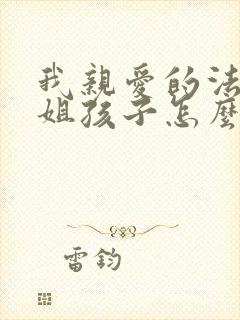 我親愛的法
姐孩子怎麼
雷鈞